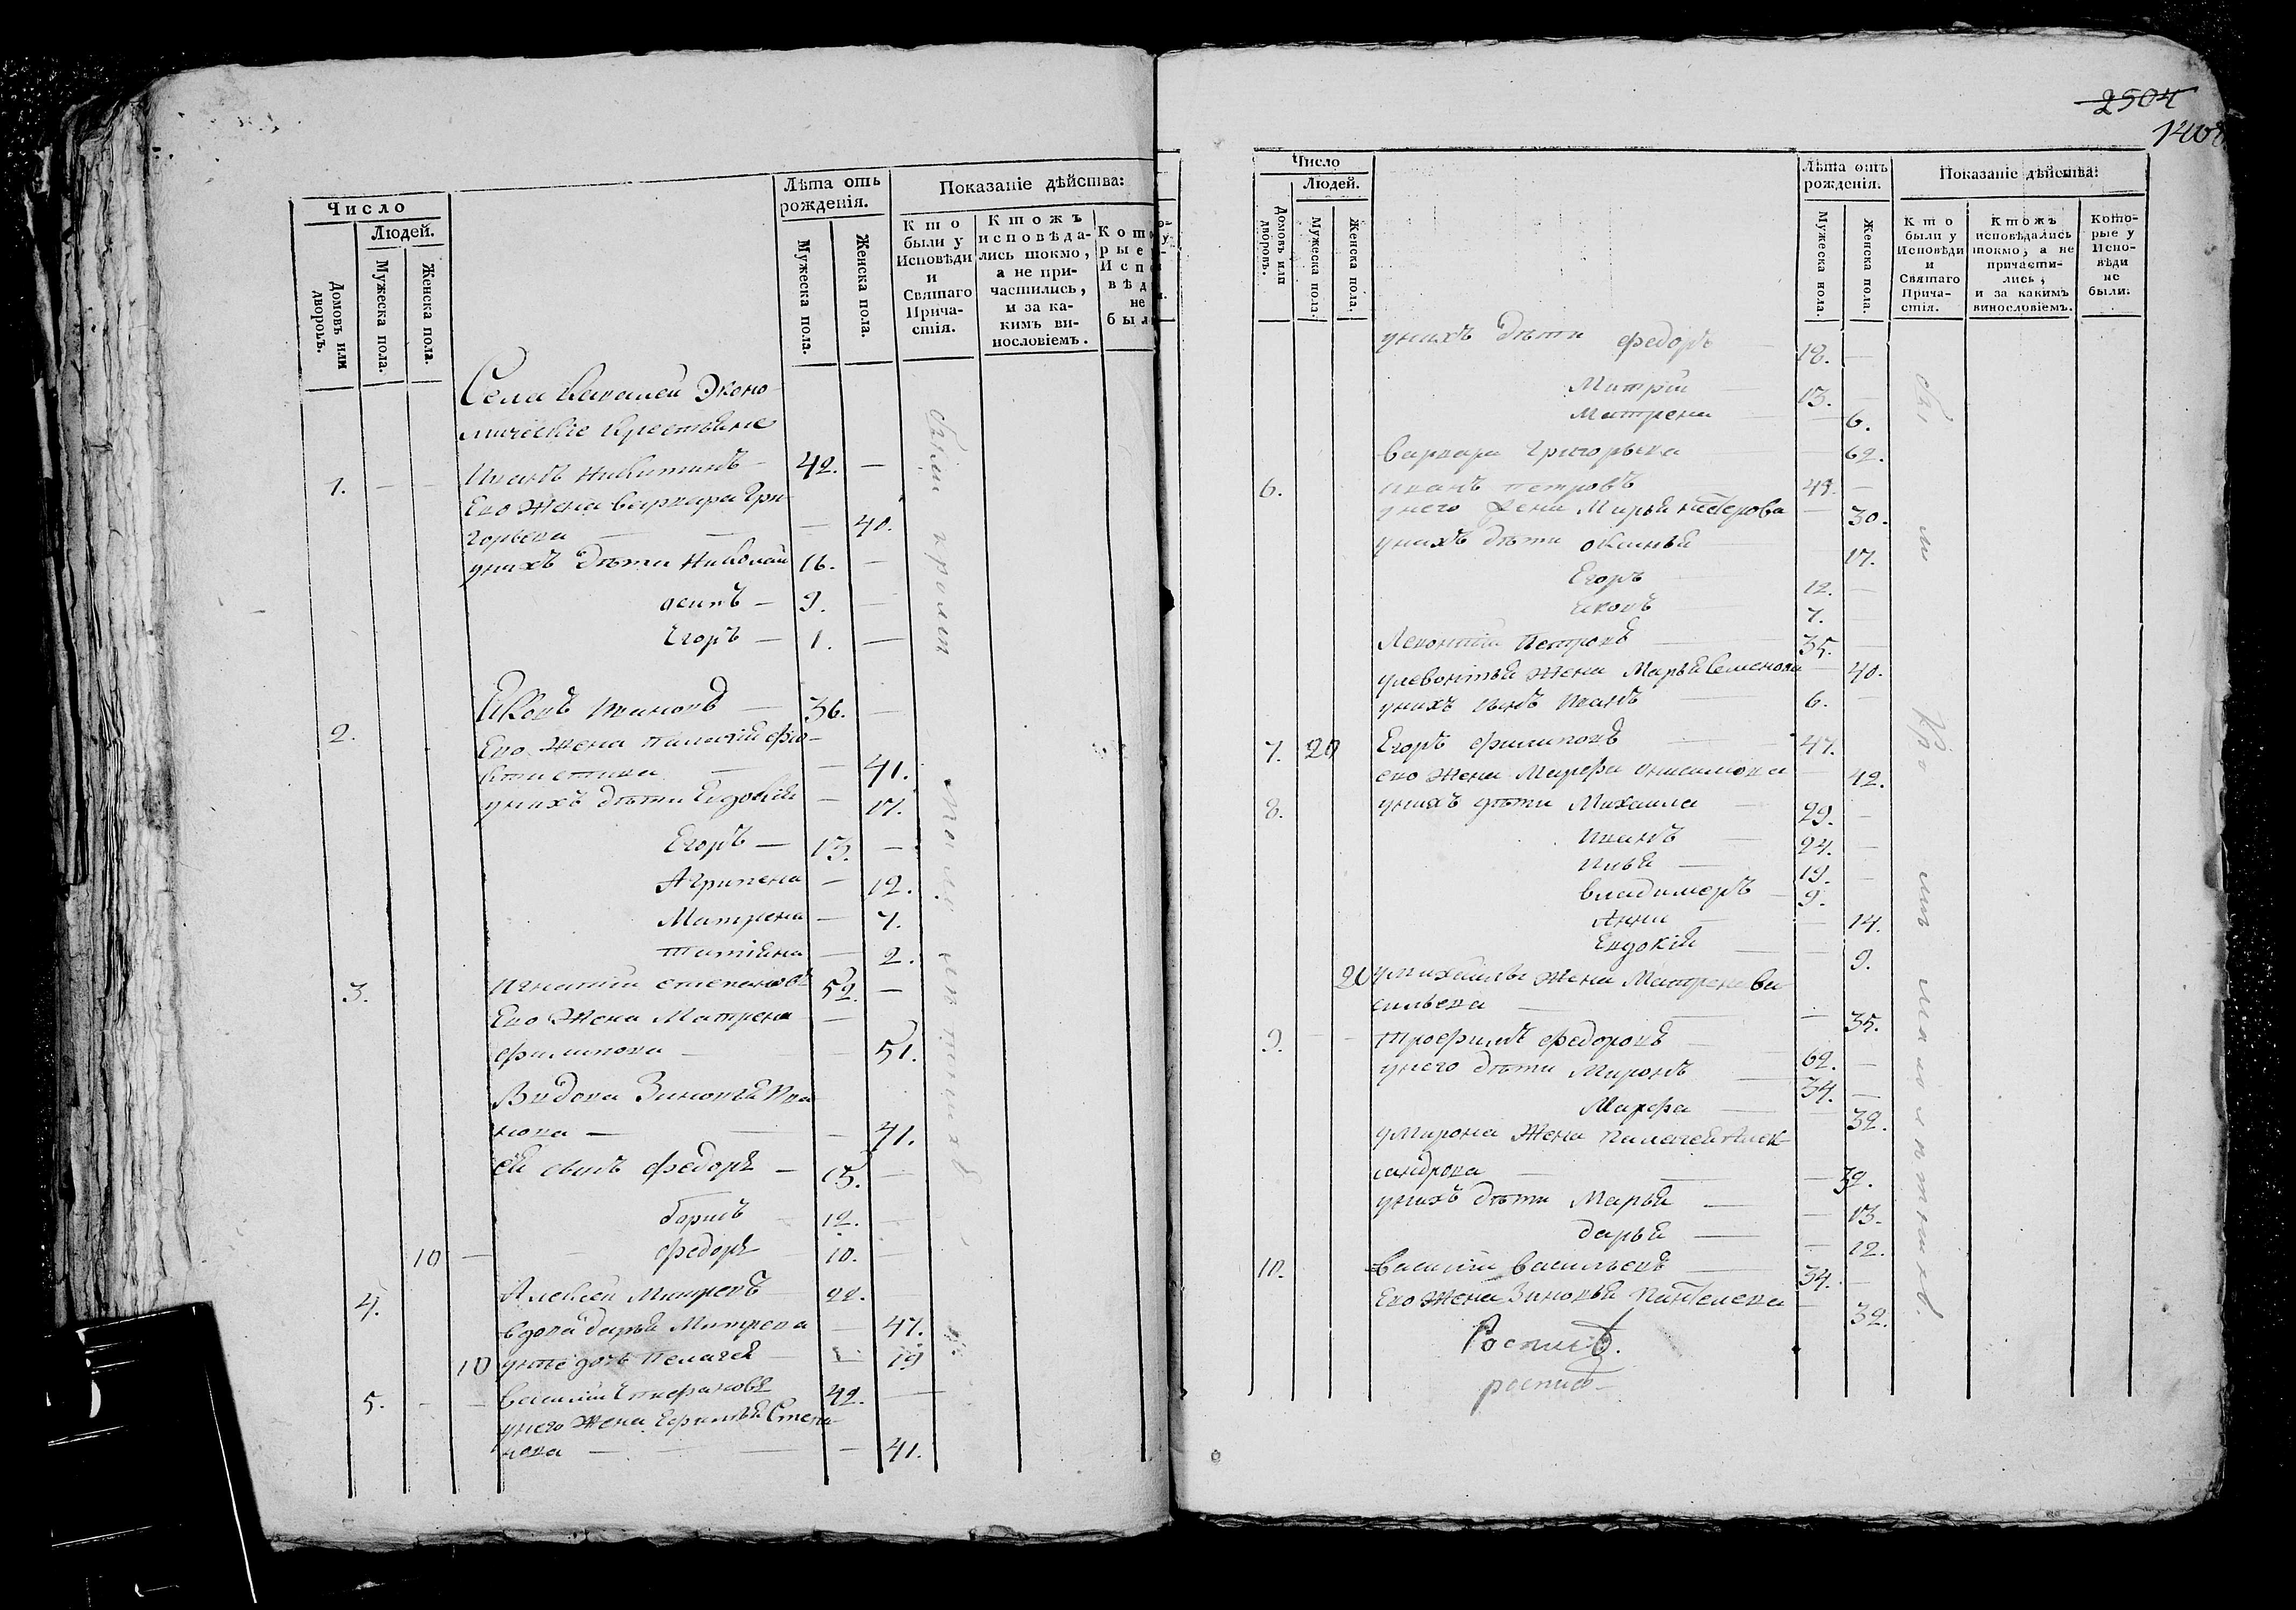 Число
Людей.
Домовъ или дворовъ.
Мужеска пола.
Женска пола.
Лѣта отъ рожденія.
Мужеска пола.
Женска пола.
Показаніе дѣйства:
Кто были у Исповѣди и Святаго Причастія.
Ктожъ исповѣдались токмо, а не причастились, и за какимъ винословіемъ.
Села Эконо
мические крестьяне
1. — — Иванъ Никитинъ — 42. —
Ево жена варвара Гри
горьева — — 40.
унихъ дѣти Николай 16. —
осипъ — 9. —
Егоръ — 1. —
2. Яковъ — 36. —
Ево жена палагия фио
— — 41.
унихъ дѣти Евдокия — 17.
Егоръ — 13. —
Агрипена — 12.
Матрена — 7.
татияна — 2.
3. Игнатий степановъ 52. —
Ево жена Матрена —
филипова — — 51.
Вндова Зиновья Ива
нова — — 41.
ей сынъ федоръ — 15. —
борисъ — 12. —
10 — федоръ — 10. —
4. Алексей Митревъ 22.
вдова дарья Митрева — 47.
10 унее дочь пелагея — 19
5. — — василий Стефановъ 42. —
унего жена Ефимья Степа
нова — — 41.
были
2504
Число
Людей.
Домовъ или дворовъ.
Мужеска пола.
Женска пола.
Лѣта отъ рожденія.
Мужеска пола.
Женска пола.
Показаніе дѣйства:
Кто были у Исповѣди и Святаго Причастія.
Ктожъ исповѣдались токмо, а не причастились, и за какимъ винословіемъ.
Которые у Исповѣди не были.
унихъ дѣти федоръ — 18. —
Митрий — 13. —
Матрена — 6.
варвара григорьева — 62.
6. иванъ петровъ — 49. —
унего жена Марья — 30.
унихъ дѣти 17.
Егоръ 12. —
яковъ 7.
Левонтий Петровъ — 35. —
улевонтья жена Марья Семенова — 40.
унихъ сынъ Иванъ 6. —
7. 20 Егоръ филиповъ — 47. —
ево жена Марфа онисимова — 42.
8. унихъ дѣти Михаила — 29. —
Иванъ — 24. —
Илья — 19. —
владимеръ — 9. —
Анна — 14.
Евдокия — 9.
20 умихаилы жена Матрена ва
сильева — — 35.
9. — трофимъ федоровъ — 62. —
унего дѣти Миронъ — 34. —
Марфа — 32.
умирона жена палагея Алек
сандрова — — 32.
унихъ дѣти Марья — 13.
дарья — — 12.
10. василий васильевъ — 34. —
Ево жена Зиновья Пантелева — 32.